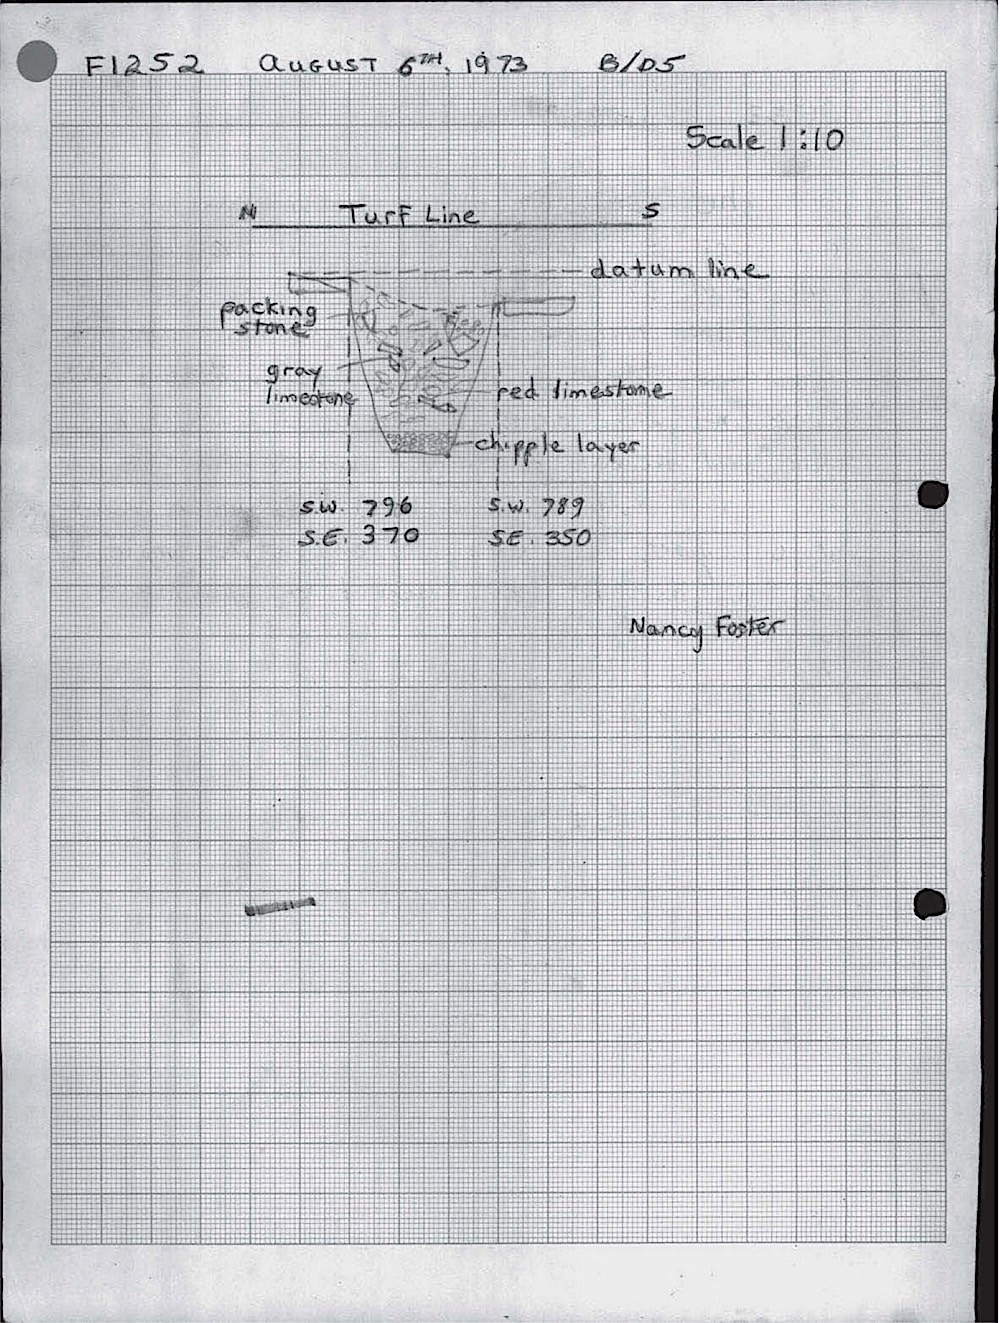 F1252 AUGUST 6TH, 1973 B/D5
Scale 1:10
N Turf Line S
datum line
packing
stone
gray
limestone
red limestone
chipple layer
S.W. 796 S.W. 789
S.E. 370 SE. 350
Nancy Foster